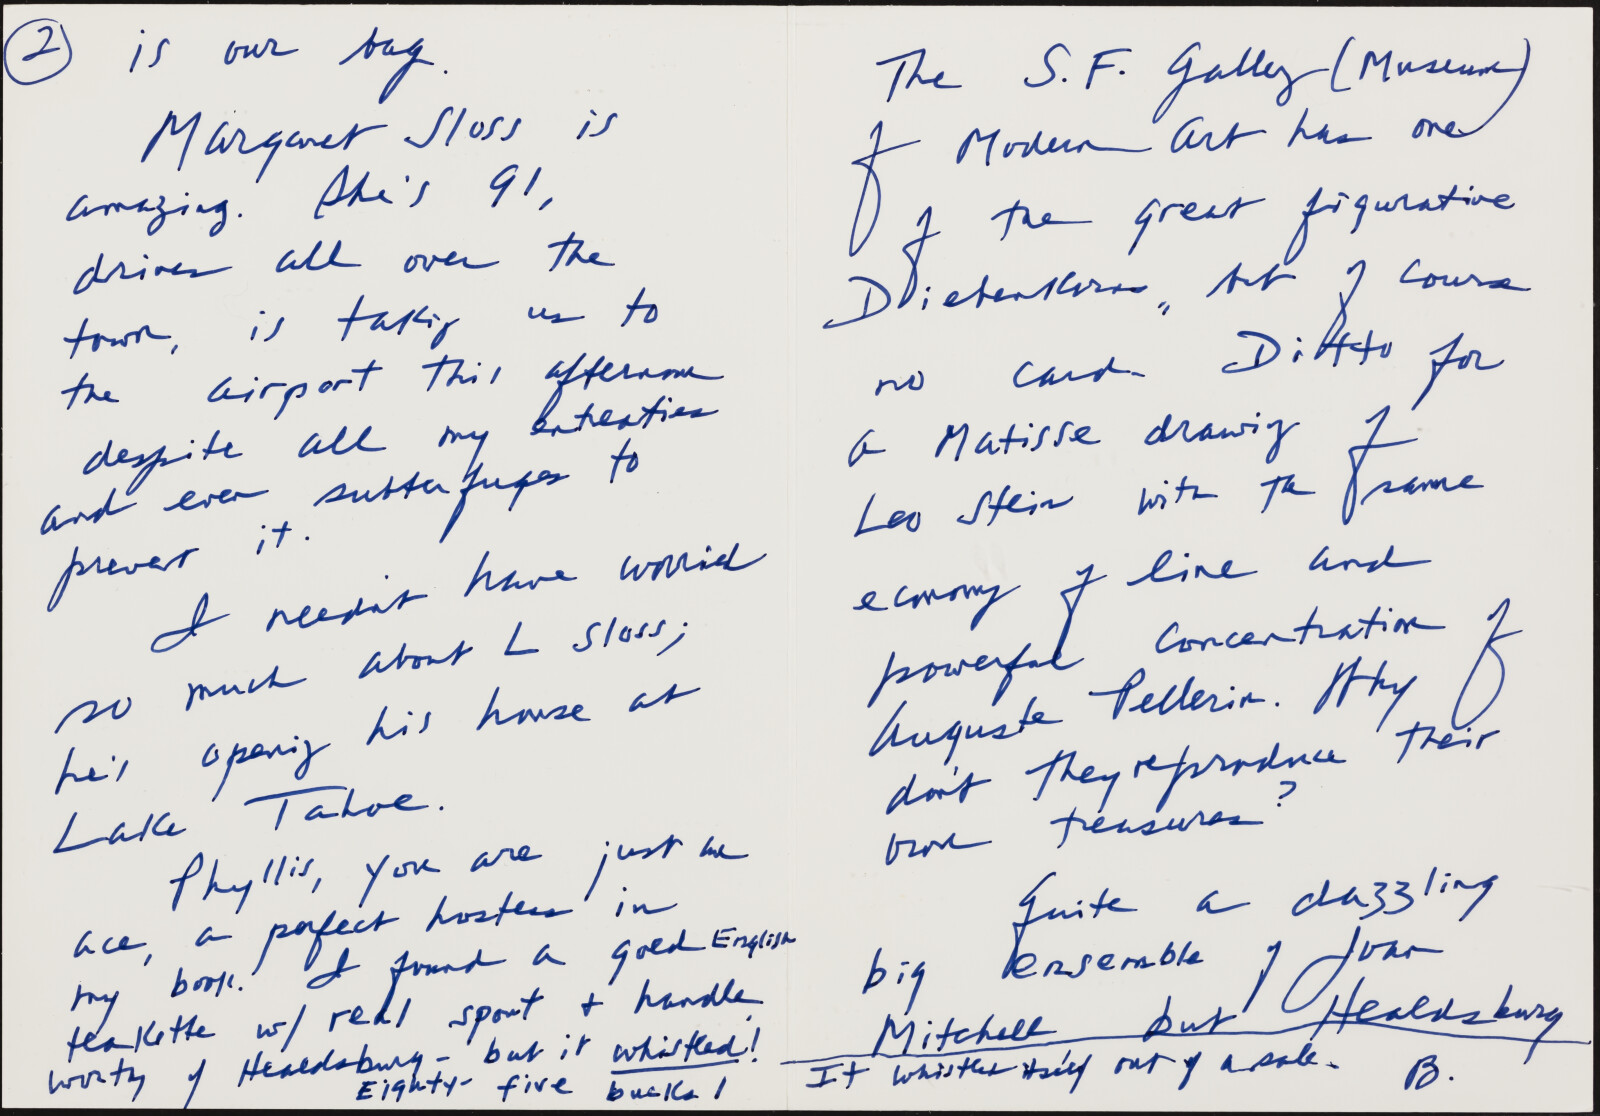 2 is our bag.
Margaret Sloss is
amazing. She's 91,
drives all over the
town, is taking us to
the airport this afternoon
despite all my entreaties
and even subterfuges to
prevent it.
I needn't have worried
so much about L Sloss;
he's opening his house at
Lake Tahoe.
Phyllis, you are just an
ace, a perfect hostess in
my book. I found a good English
teakettle w/ real spout + handle
worthy of Healdsburg - but it whistled!
Eighty-five bucks!
The S.F. Gallery (Museum)
of Modern Art has one
of the great figurative
Diebenkorns, but of course
no card. Ditto for
a Matisse drawing of
Leo Stein with the same
economy of line and
powerful concentration of
Auguste Pellerin. Why
don't they reproduce their
own treasures?
Quite a dazzling
big ensemble of Joan
Mitchell but Healdsburg
It whistled itself out of a sale.
B.